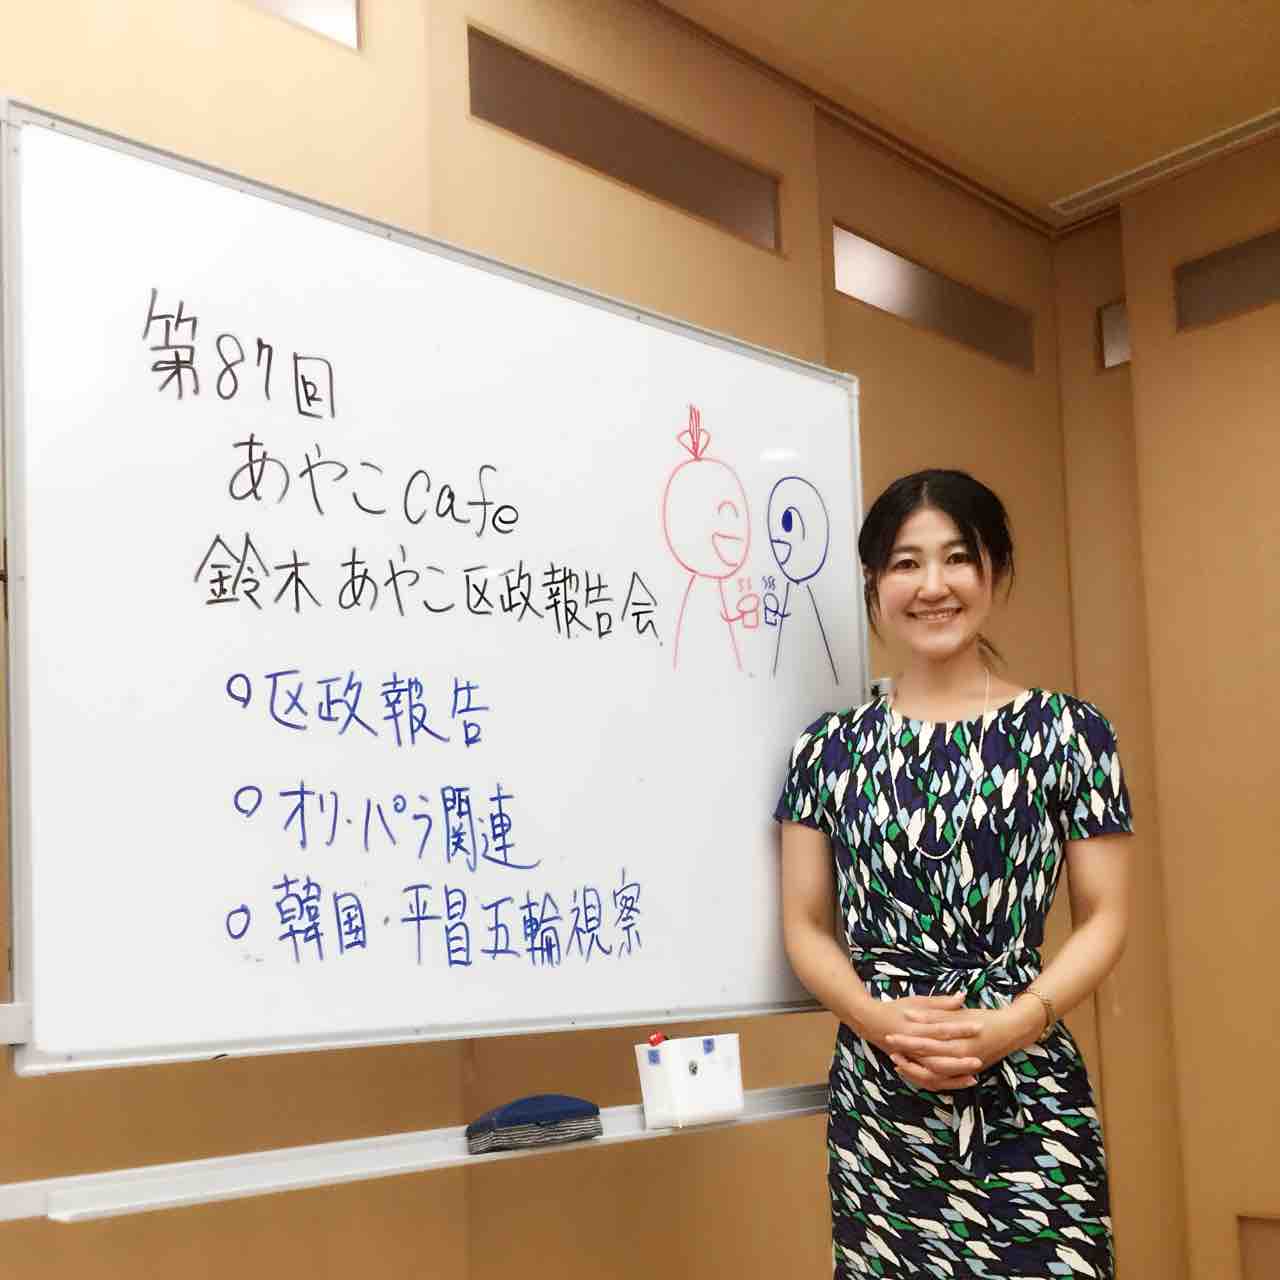 第87回
あやこcafe
鈴木あやこ区政報告会
○区政報告
○オリ・パラ関連
○韓国・平昌五輪視察